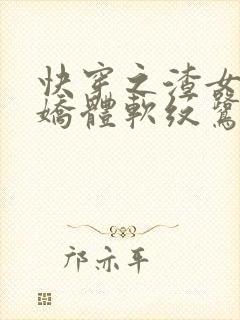 快穿之渣女
嬌體軟纹鷺
邝亦平